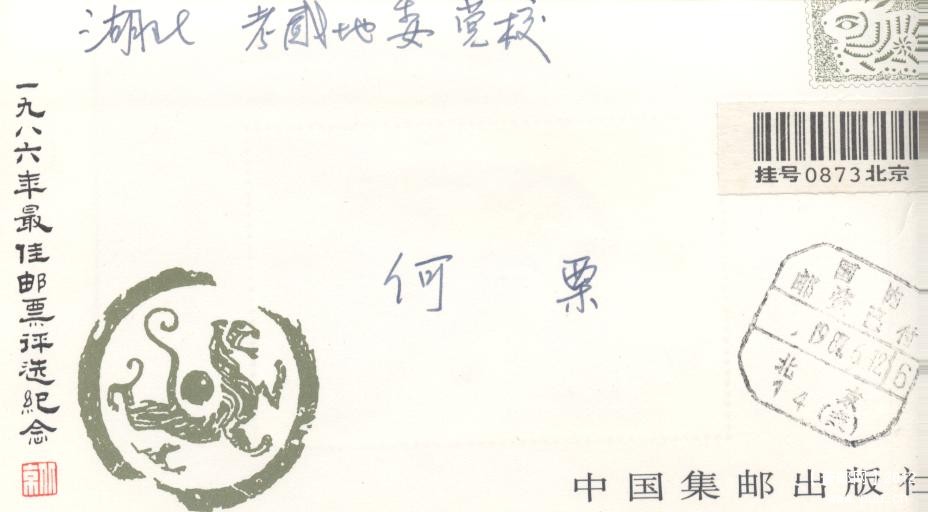 湖北 孝感地委党校
一九八六年最佳邮票评选纪念
挂号0873北京
何 票
国内
邮资已付
北京
14(支)
中国集邮出版社